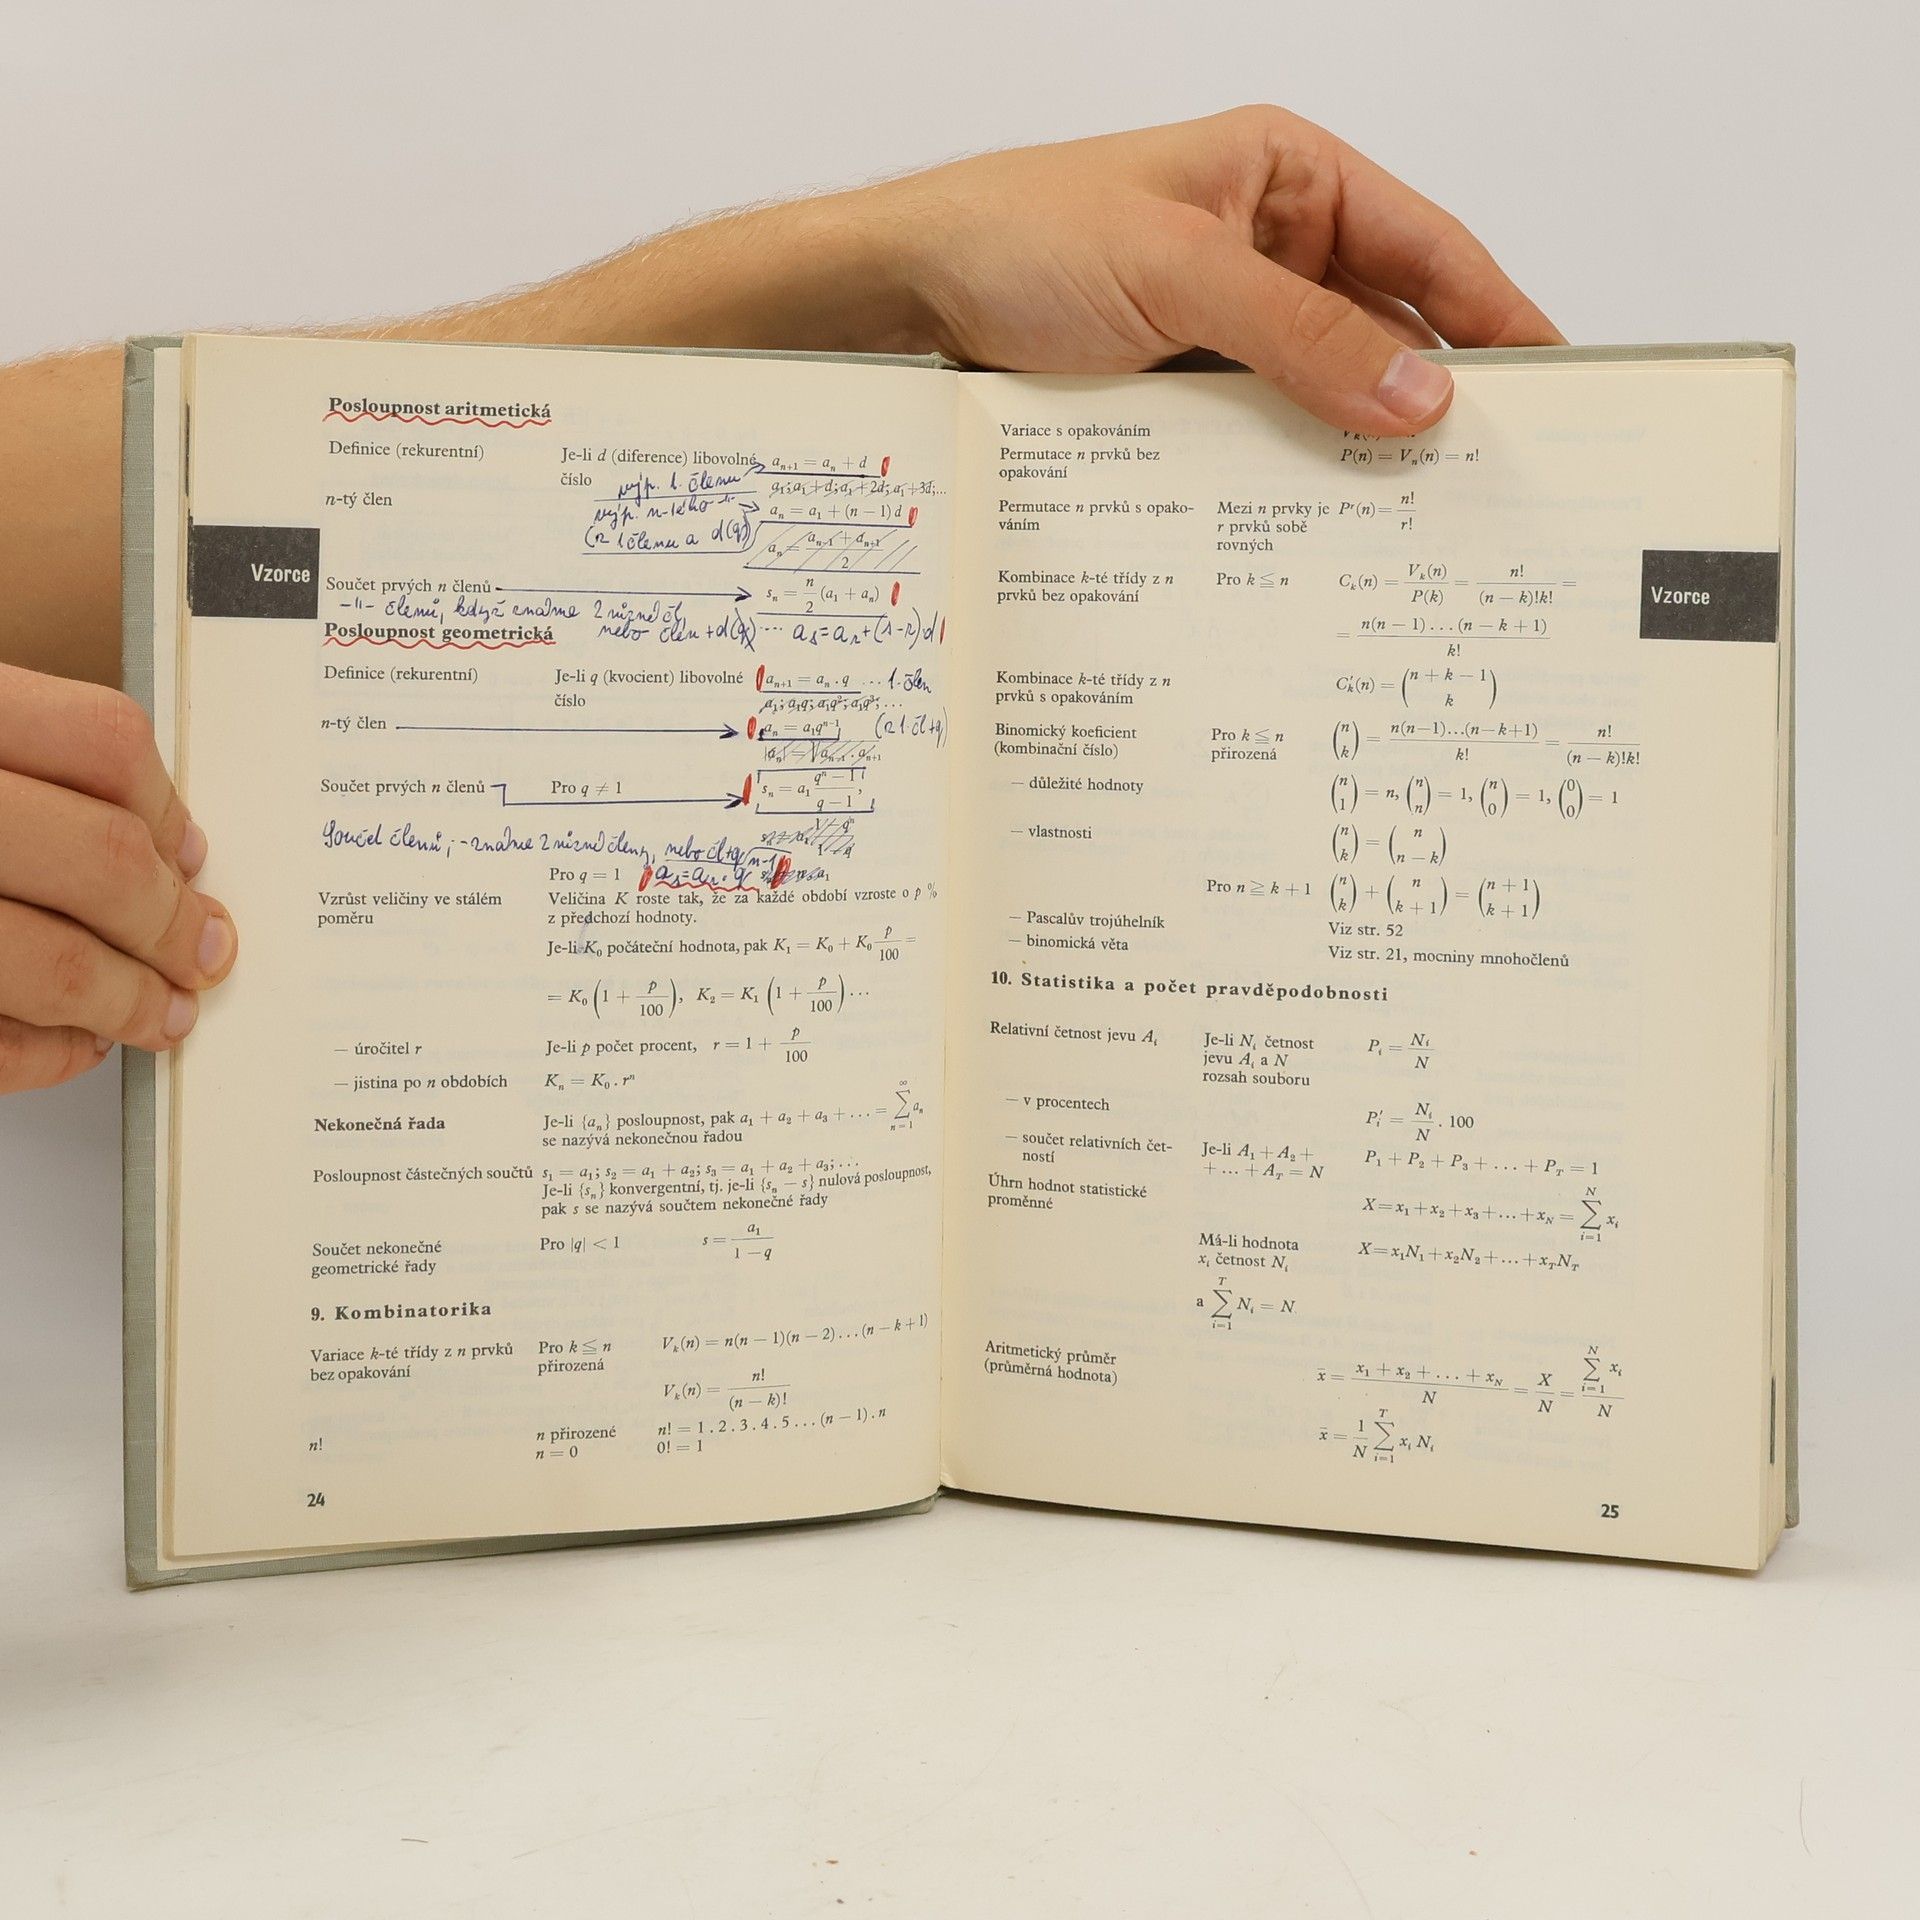 Posloupnost aritmetická
Definice (rekurentní) Je-li d (diference) libovolné číslo aₙ₊₁ = aₙ + d
výp. 1. členu a₁; a₁ + d; a₁ + 2d; a₁ + 3d; ...
n-tý člen výp. n-tého -"- aₙ = a₁ + (n − 1) d
(z 1 členu a d(q)) aₙ = (aₙ₋₁ + aₙ₊₁)/2
Vzorce
Součet prvých n členů sₙ = n/2 (a₁ + aₙ)
-"- členů, když známe 2 různé čl,
nebo člen + d(q) ... aₛ = aᵣ + (s − r) d
Posloupnost geometrická
Definice (rekurentní) Je-li q (kvocient) libovolné číslo aₙ₊₁ = aₙ . q ... 1. člen
a₁; a₁q; a₁q²; a₁q³; ...
n-tý člen aₙ = a₁qⁿ⁻¹ (z 1. čl + q)
|aₙ| = √aₙ₋₁ . aₙ₊₁
Součet prvých n členů Pro q ≠ 1 sₙ = a₁ (qⁿ − 1)/(q − 1),
Součet členů; - známe 2 různé členy, nebo čl + q
Pro q = 1
Vzrůst veličiny ve stálém poměru Veličina K roste tak, že za každé období vzroste o p %
z předchozí hodnoty.
Je-li K₀ počáteční hodnota, pak K₁ = K₀ + K₀ p/100 =
= K₀ (1 + p/100), K₂ = K₁ (1 + p/100) ...
— úročitel r Je-li p počet procent, r = 1 + p/100
— jistina po n obdobích Kₙ = K₀ . rⁿ
Nekonečná řada Je-li {aₙ} posloupnost, pak a₁ + a₂ + a₃ + ... = ∑ₙ₌₁^∞ aₙ
se nazývá nekonečnou řadou
Posloupnost částečných součtů s₁ = a₁; s₂ = a₁ + a₂; s₃ = a₁ + a₂ + a₃; ...
Je-li {sₙ} konvergentní, tj. je-li {sₙ − s} nulová posloupnost,
pak s se nazývá součtem nekonečné řady
Součet nekonečné geometrické řady Pro |q| < 1 s = a₁/(1 − q)
9. Kombinatorika
Variace k-té třídy z n prvků bez opakování Pro k ≦ n přirozená Vₖ(n) = n(n − 1)(n − 2)...(n − k + 1)
Vₖ(n) = n!/(n − k)!
n! n přirozené n! = 1 . 2 . 3 . 4 . 5 ... (n − 1) . n
n = 0 0! = 1
24
Variace s opakováním
Permutace n prvků bez opakování P(n) = Vₙ(n) = n!
Permutace n prvků s opako-
váním Mezi n prvky je r prvků sobě rovných Pʳ(n) = n!/r!
Kombinace k-té třídy z n prvků bez opakování Pro k ≦ n Cₖ(n) = Vₖ(n)/P(k) = n!/((n − k)!k!) =
= n(n − 1)...(n − k + 1)/k!
Vzorce
Kombinace k-té třídy z n prvků s opakováním C′ₖ(n) = (n + k − 1 nad k)
Binomický koeficient (kombinační číslo) Pro k ≦ n přirozená (n nad k) = n(n−1)...(n−k+1)/k! = n!/((n − k)!k!)
— důležité hodnoty (n nad 1) = n, (n nad n) = 1, (n nad 0) = 1, (0 nad 0) = 1
— vlastnosti (n nad k) = (n nad n − k)
Pro n ≧ k + 1 (n nad k) + (n nad k + 1) = (n + 1 nad k + 1)
— Pascalův trojúhelník Viz str. 52
— binomická věta Viz str. 21, mocniny mnohočlenů
10. Statistika a počet pravděpodobnosti
Relativní četnost jevu Aᵢ Je-li Nᵢ četnost jevu Aᵢ a N rozsah souboru Pᵢ = Nᵢ/N
— v procentech P′ᵢ = Nᵢ/N . 100
— součet relativních čet-
ností Je-li A₁ + A₂ + + ... + A_T = N P₁ + P₂ + P₃ + ... + P_T = 1
Úhrn hodnot statistické proměnné X = x₁ + x₂ + x₃ + ... + x_N = ∑ᵢ₌₁^N xᵢ
Má-li hodnota xᵢ četnost Nᵢ X = x₁N₁ + x₂N₂ + ... + x_T N_T
a ∑ᵢ₌₁^T Nᵢ = N
Aritmetický průměr (průměrná hodnota) x̄ = (x₁ + x₂ + ... + x_N)/N = X/N = ∑ᵢ₌₁^N xᵢ/N
x̄ = 1/N ∑ᵢ₌₁^T xᵢ Nᵢ
25